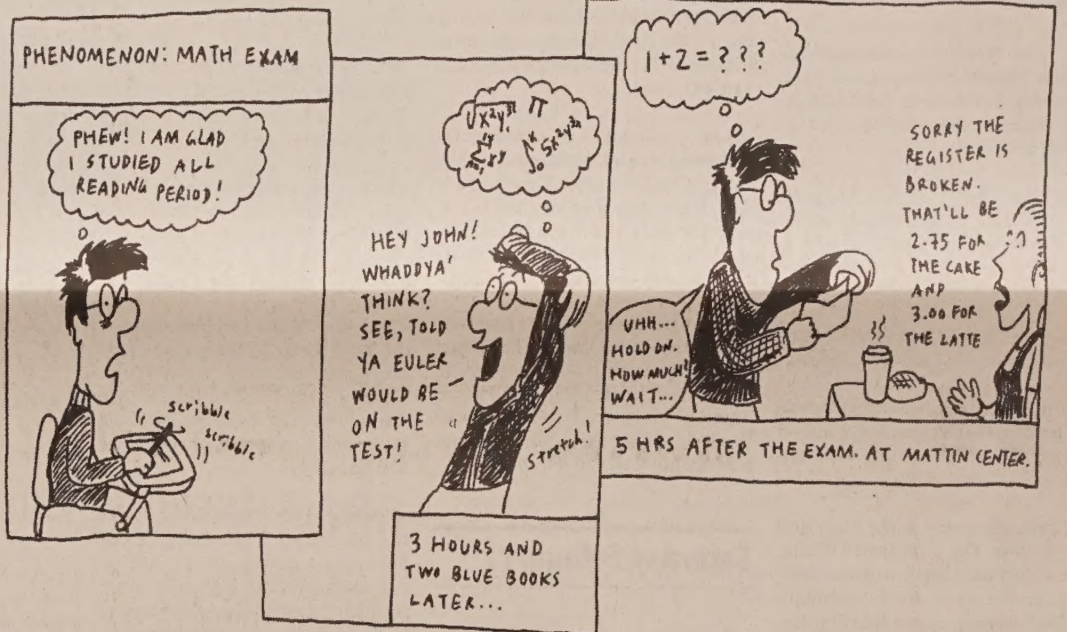 PHENOMENON: MATH EXAM
PHEW! I AM GLAD
I STUDIED ALL
READING PERIOD!
scribble
scribble
HEY JOHN!
WHADDYA'
THINK?
SEE, TOLD
YA EULER
WOULD BE
ON THE
TEST!
stretch!
3 HOURS AND
TWO BLUE BOOKS
LATER...
1 + 2 = ? ? ?
SORRY THE
REGISTER IS
BROKEN.
THAT'LL BE
2.75 FOR
THE CAKE
AND
3.00 FOR
THE LATTE
UHH...
HOLD ON.
HOW MUCH?
WAIT...
5 HRS AFTER THE EXAM. AT MATTIN CENTER.